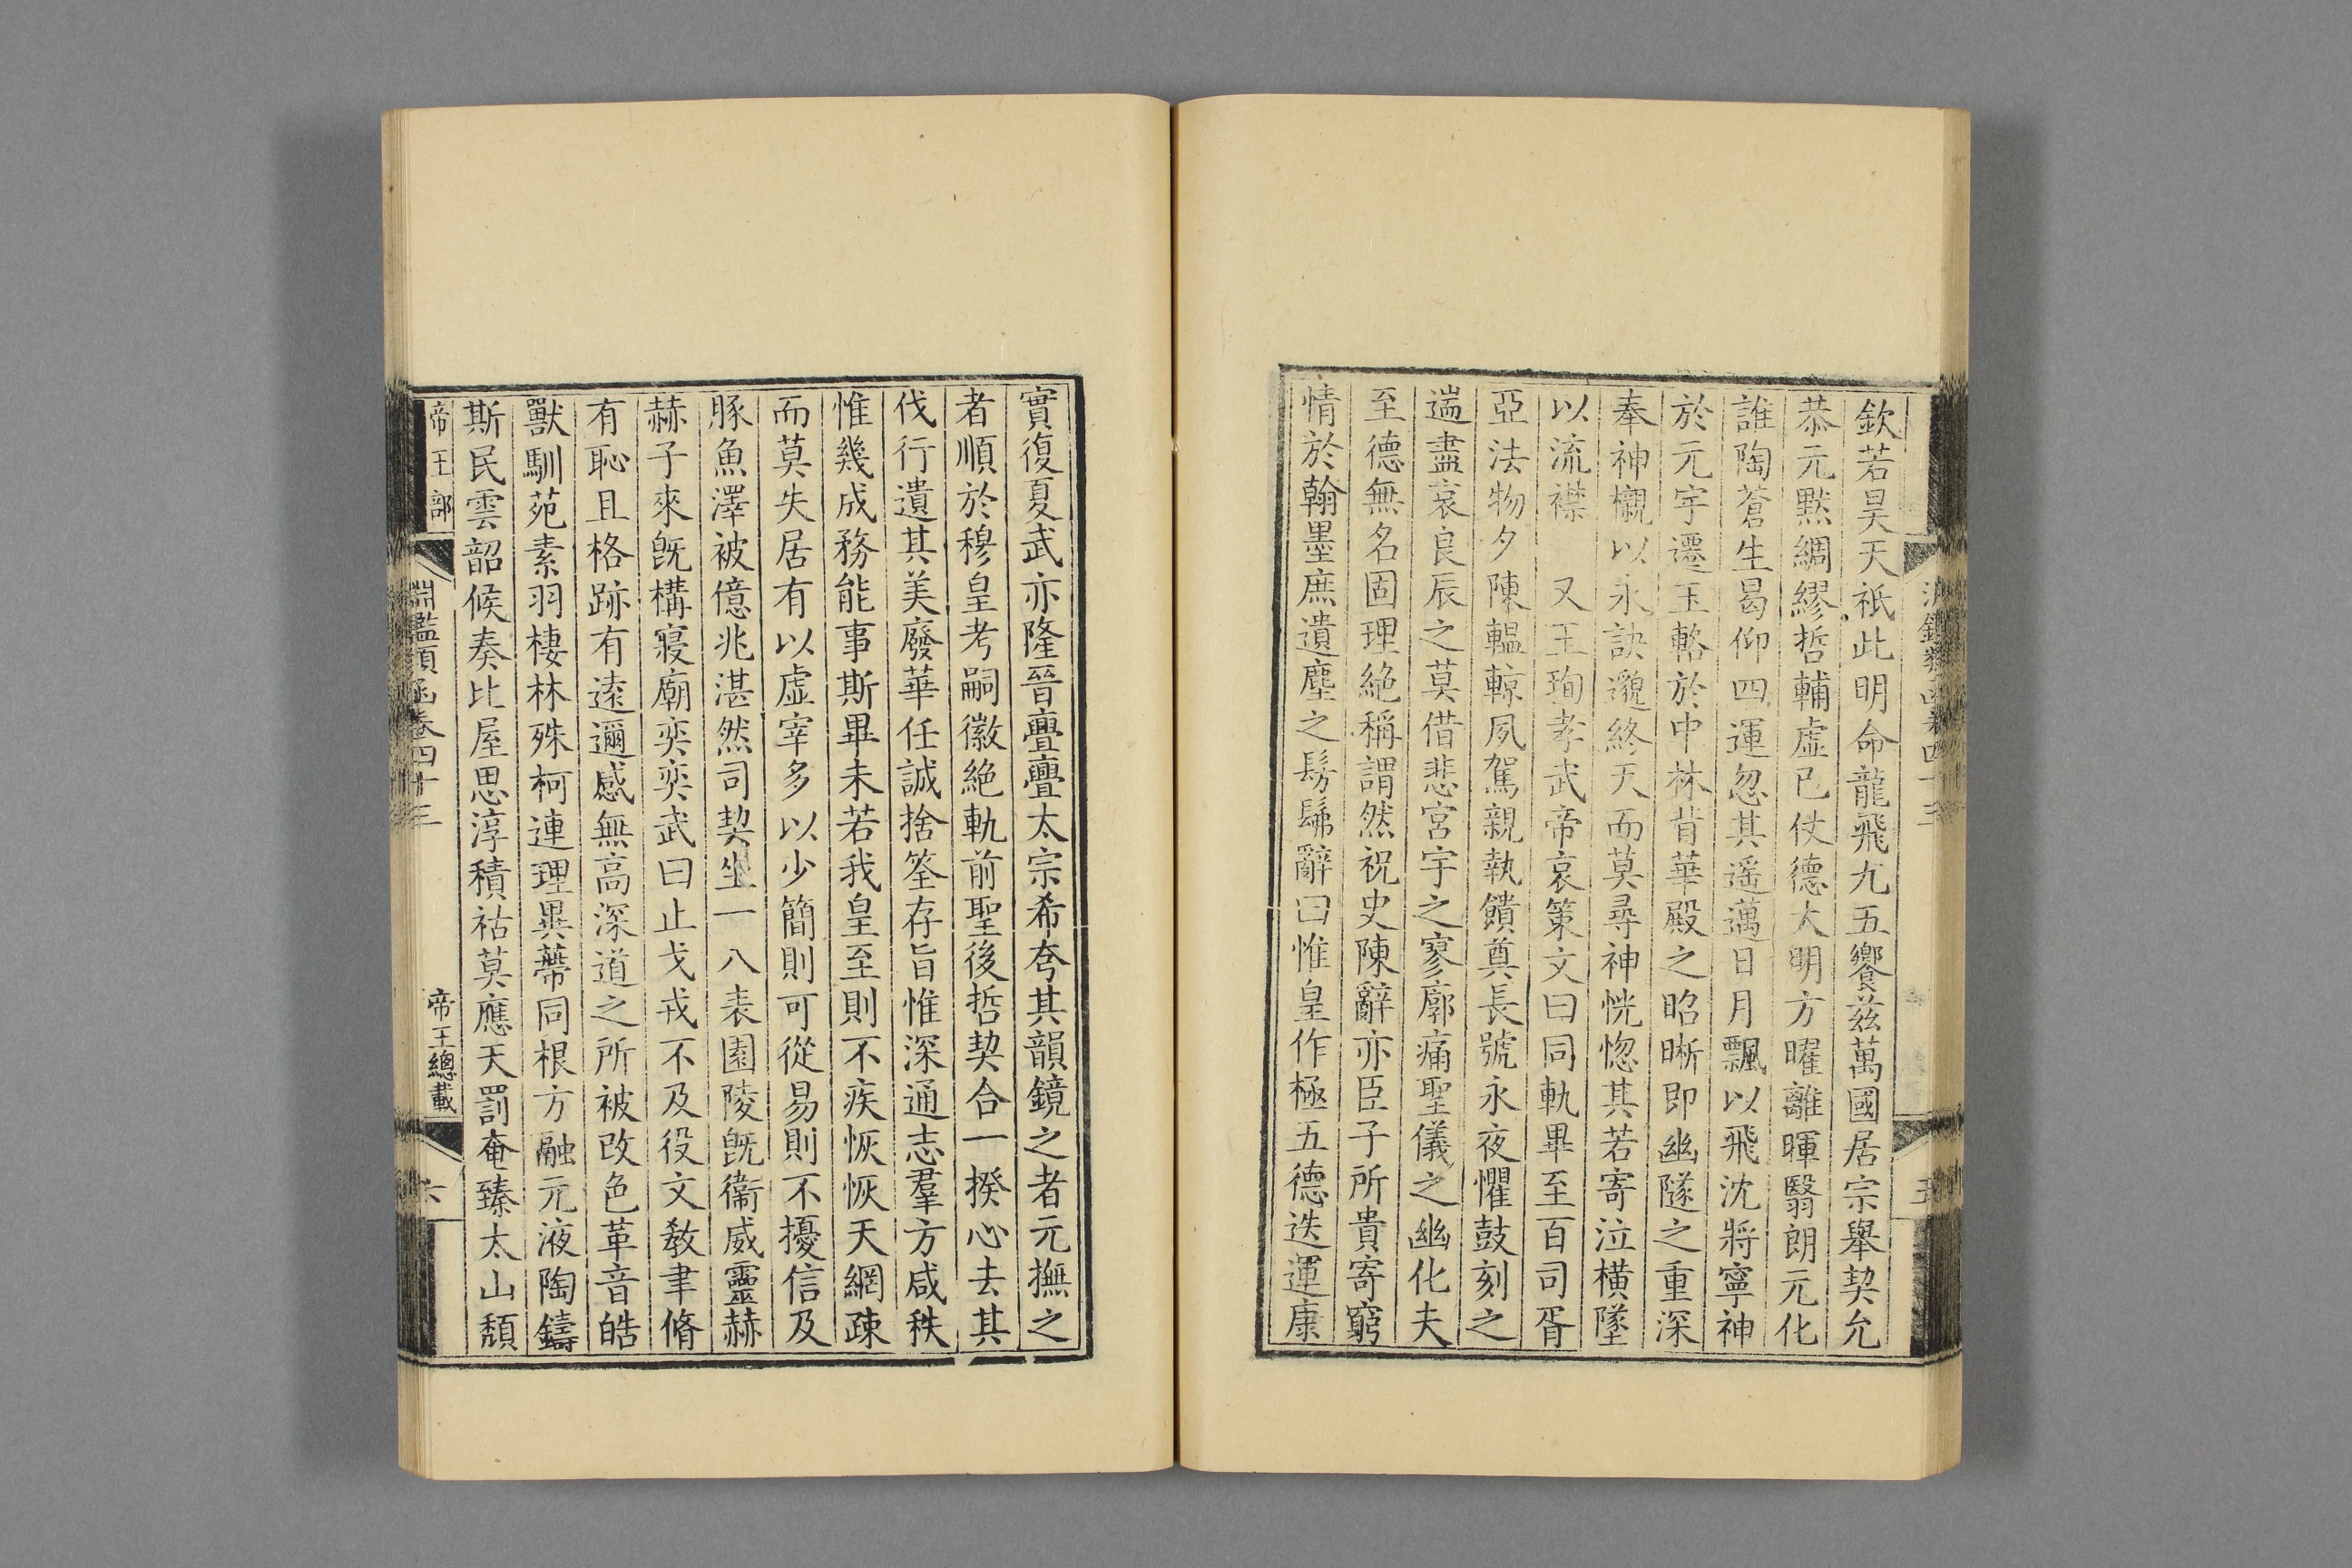 欽若昊天祇此明命龍飛九五饗茲萬國居宗舉契允
恭元默綢繆哲輔虛已仗德大明方曜離暉翳朗元化
誰陶蒼生曷仰四運忽其遥邁日月飄以飛沈將寧神
於元宇遷玉輅於中林背華殿之昭晰即幽隧之重深
奉神櫬以永訣邈終天而莫尋神恍惚其若寄泣横墜
以流襟　又王珣孝武帝哀策文曰同軌畢至百司胥
亞法物夕陳轀輬夙駕親執饋奠長號永夜懼鼓刻之
遄盡哀良辰之莫借悲宮宇之寥廓痛聖儀之幽化夫
至德無名固理絶稱謂然祝史陳辭亦臣子所貴寄窮
情於翰墨庶遺塵之髣髴辭曰惟皇作極五德迭運康
實復夏武亦隆晉亹亹太宗希夸其韻鏡之者元撫之
者順於穆皇考嗣徽絶軌前聖後哲契合一揆心去其
伐行遺其美廢華任誠捨筌存旨惟深通志羣方咸秩
惟幾成務能事斯畢未若我皇至則不疾恢恢天網疎
而莫失居有以虛宰多以少簡則可從易則不擾信及
豚魚澤被億兆湛然司契坐一八表園陵旣衞威靈赫
赫子來旣構寢廟奕奕武曰止戈戎不及役文教聿脩
有恥且格跡有遠邇感無高深道之所被改色革音皓
獸馴苑素羽棲林殊柯連理異蔕同根方融元液陶鑄
斯民雲韶候奏比屋思淳積祜莫應天罰奄臻太山頹
帝王部
淵鑑類函卷四十三
帝王總載
六